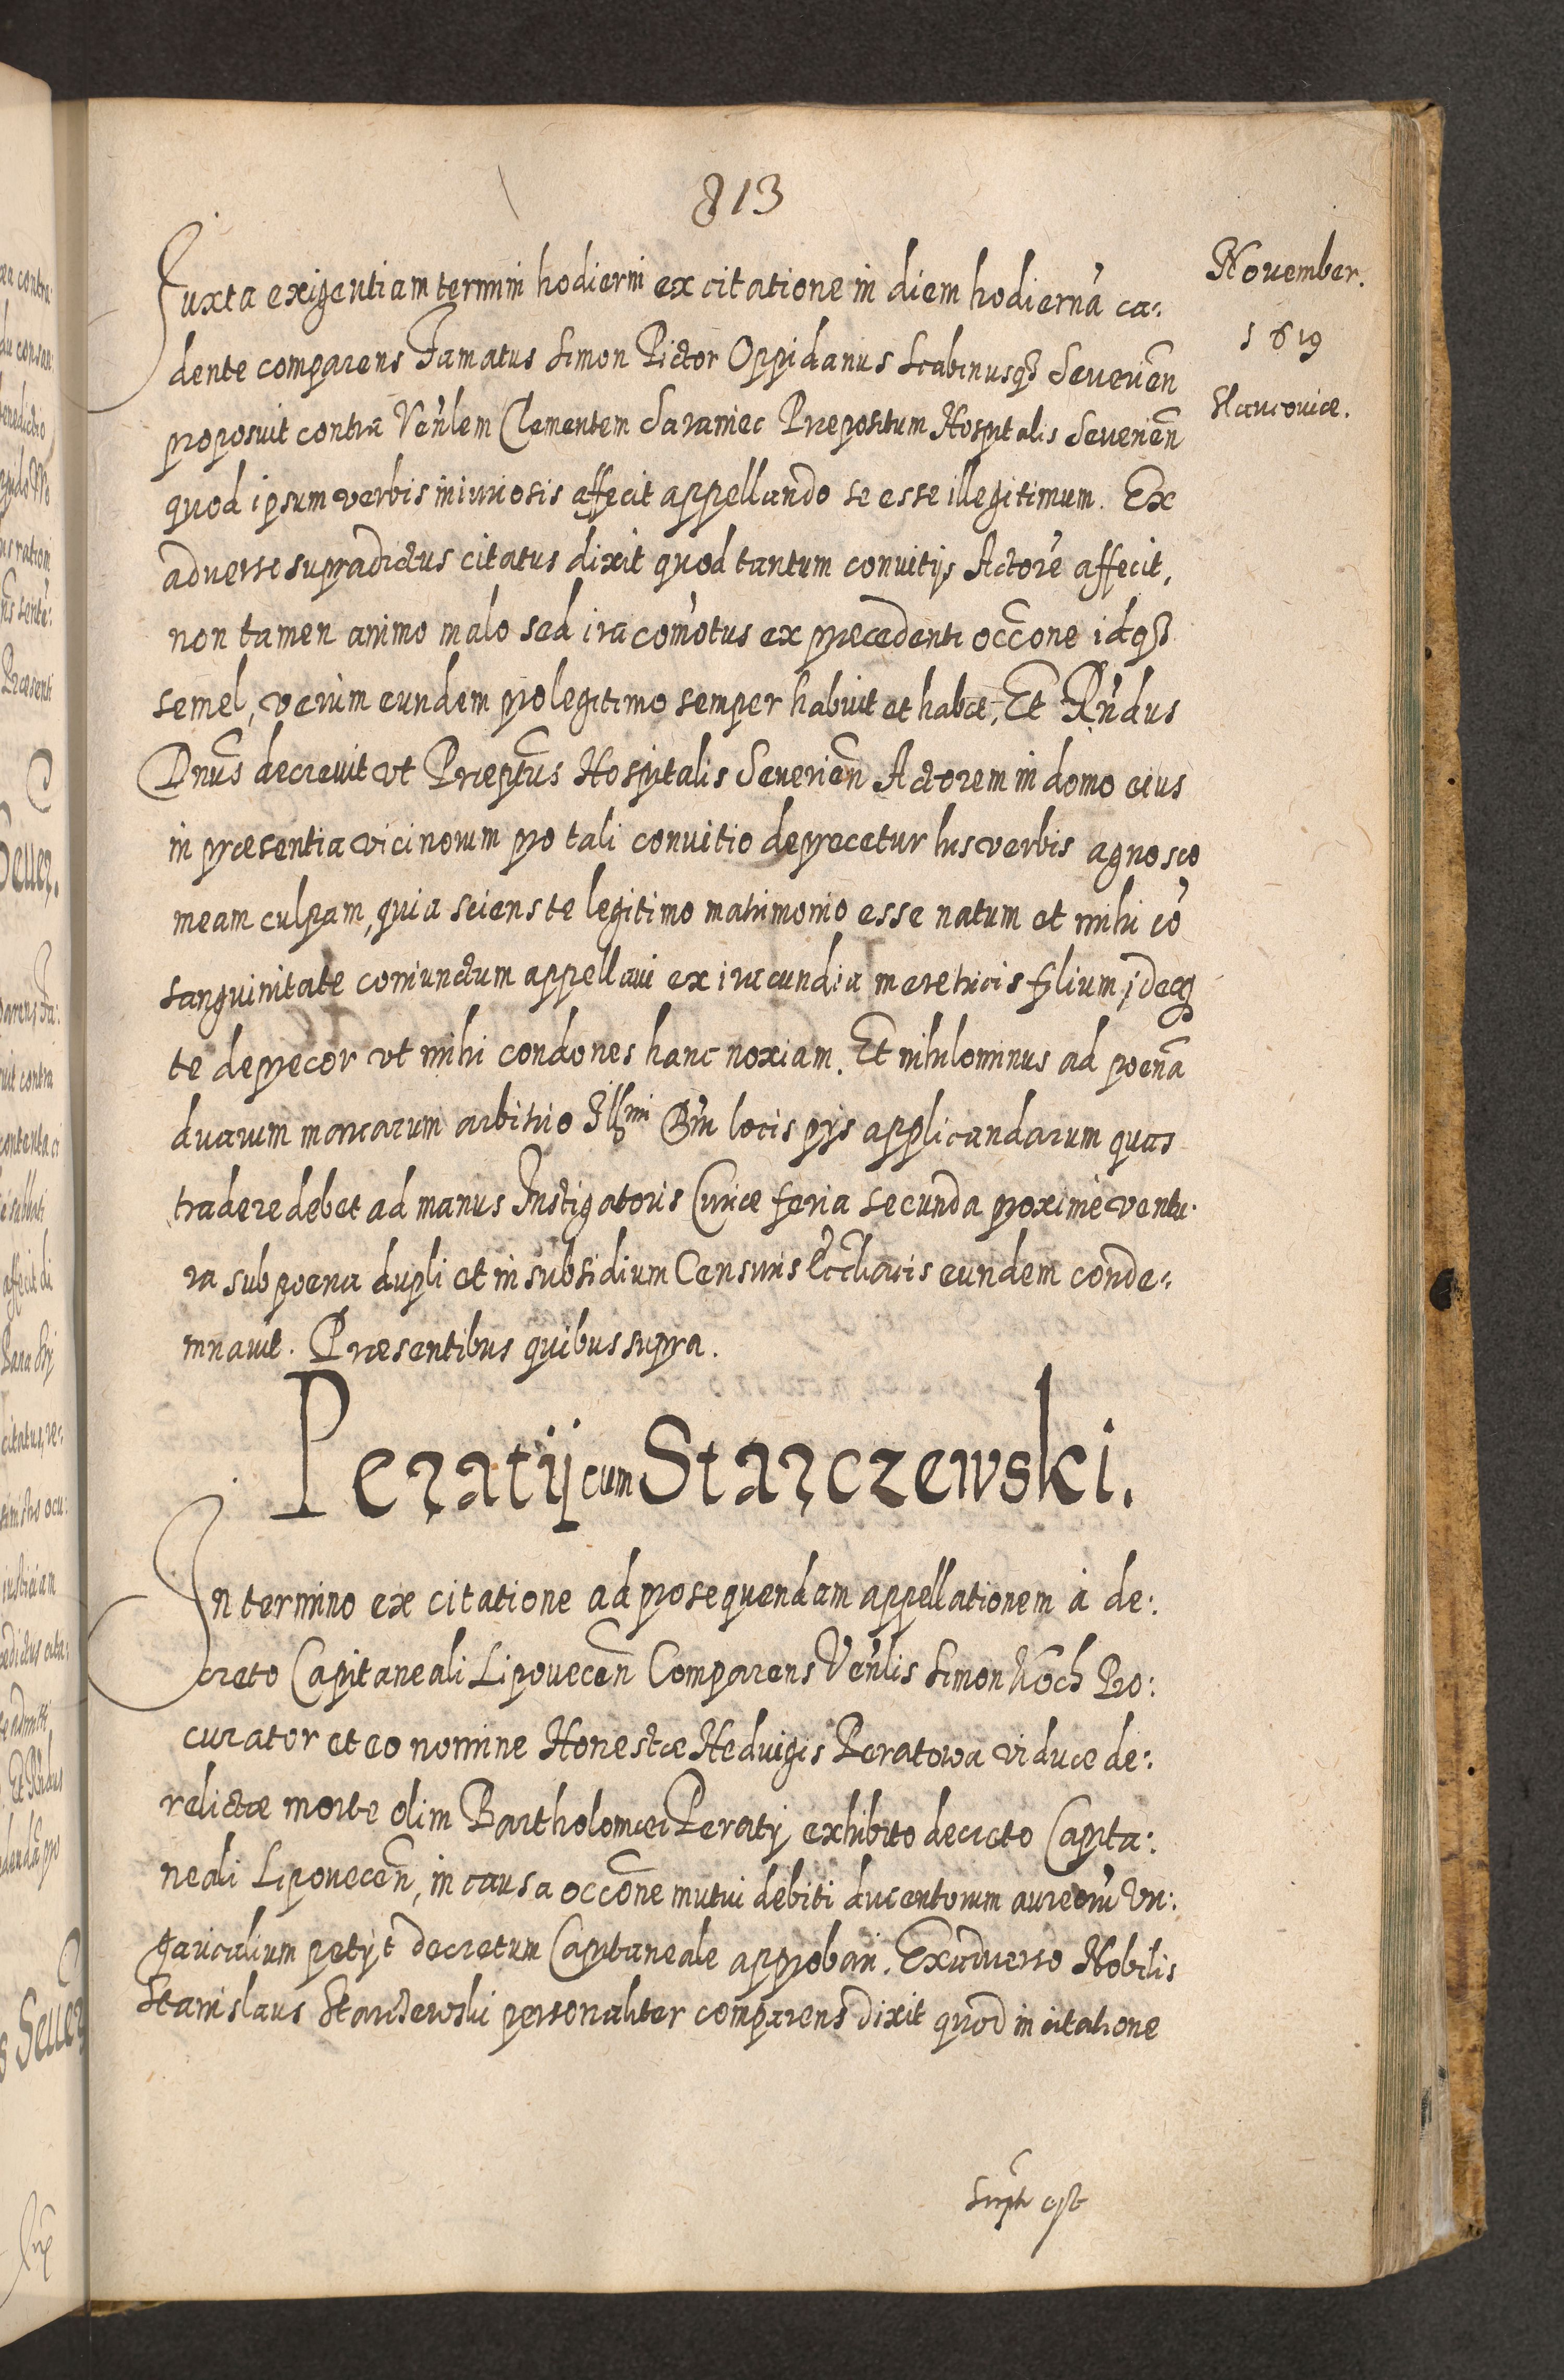 813
November.
1619
Slavcoviæ.
Juxta exigentiam termini hodierni ex citatione in diem hodiernā ca:
dente comparens Famatus Simon Pictor Oppidanus Scabinusqȝ Seveřien̄
proposuit contra Ven̄lem Clementem Saraniec Præpositum Hospitalis Severien̄
quod ipsum verbis iniuriosis affecit appellando se esse illegitimum. Ex
adverso supradictus citatus dixit quod tantum convitijs Actorē affecit,
non tamen animo malo sed ira com̄otus ex præcedenti occ͠one idqȝ
semel, verùm eundem pro legitimo semper habuit et habet, Et Rn̄dus
Dn̄us decrevit vt Præptūs Hospitalis Severien̄ Actorem in domo eius
in præsentia vicinorum pro tali convitio deprecetur his verbis agnosco
meam culpam, quia sciens te legitimo matrimonio esse natum et mihi cō
sanguinitate coniunctum appellavi ex iracundia meretricis filium, ideoqȝ
te deprecor vt mihi condones hanc noxiam. Et nihilominus ad poenā
duarum marcarum arbitrio Illmi Dn̄i locis pijs applicandarum quas
tradere debet ad manus Instigatoris Curiæ feria secunda proximè ventu:
ra sub poena dupli et in subsidium Censuris Ecc͠lia͠cis eundem conde:
mnavit. Præsentibus quibus supra.
Peratij cum Starczewski.
In termino ex citatione ad prosequendam appellationem à de:
creto Capitaneali Lipovecen̄ Comparens Ven̄lis Simon Koch Pro:
curator et eo nomine Honestæ Hedvigis Peratowa viduæ de:
relictæ morte olim Bartholomæi Peratij exhibito decreto Capita:
neali Lipovecen̄, in causa occ͠one mutui debiti ducentorum aureorū Vn:
garicalium petijt decretum Capitaneale approbari. Ex adverso Nobilis
Stanislaus Starczewski personaliter comparens dixit quod in citatione